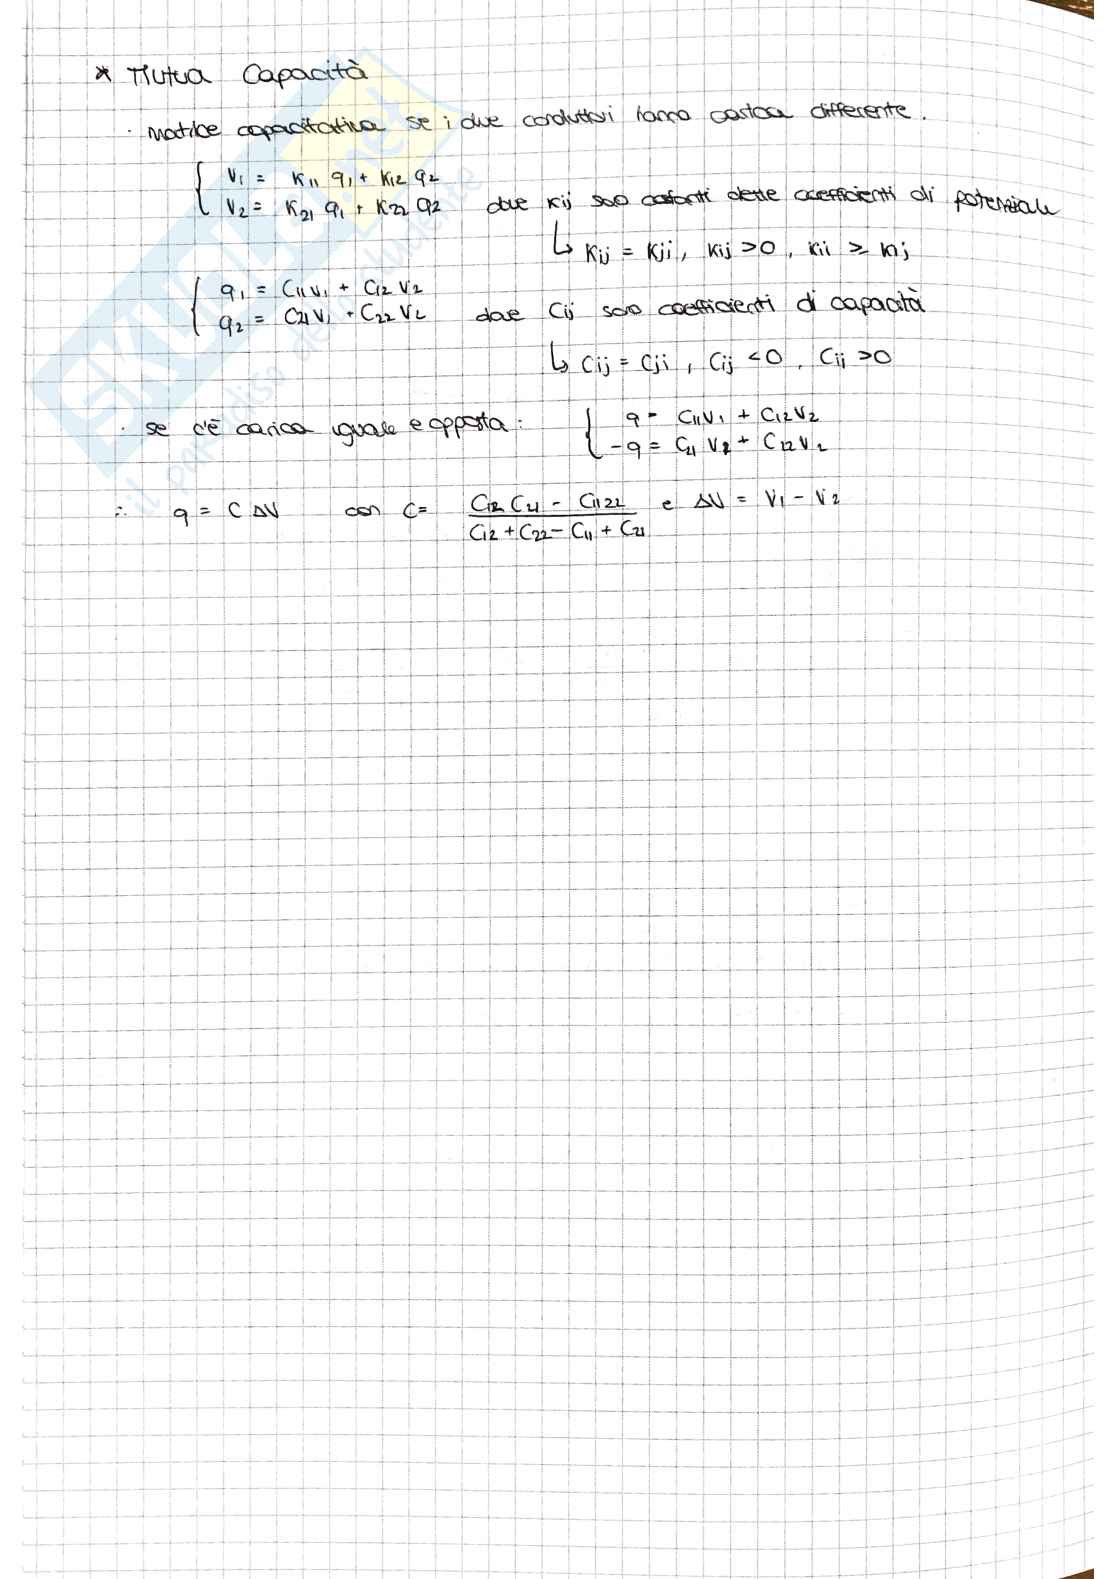 * Mutua Capacità
· Matrice capacitativa se i due conduttori hanno carica differente.
V1 = K11 q1 + K12 q2
V2 = K21 q1 + K22 q2 dove Kij sono costanti dette coefficienti di potenziale
↳ Kij = Kji, Kij >0, Kii ≥ Kij
q1 = C11V1 + C12 V2
q2 = C21V1 + C22 V2 dove Cij sono coefficienti di capacità
↳ Cij = Cji, Cij <0, Cii >0
· se c'è carica uguale e opposta: q = C11V1 + C12V2
-q = C21 V2 + C22V2
∴ q = C ΔV con C = (C12 C21 - C1122) / (C12 + C22 - C11 + C21) e ΔV = V1 - V2
SKUOLA.net
il paradiso dello studente